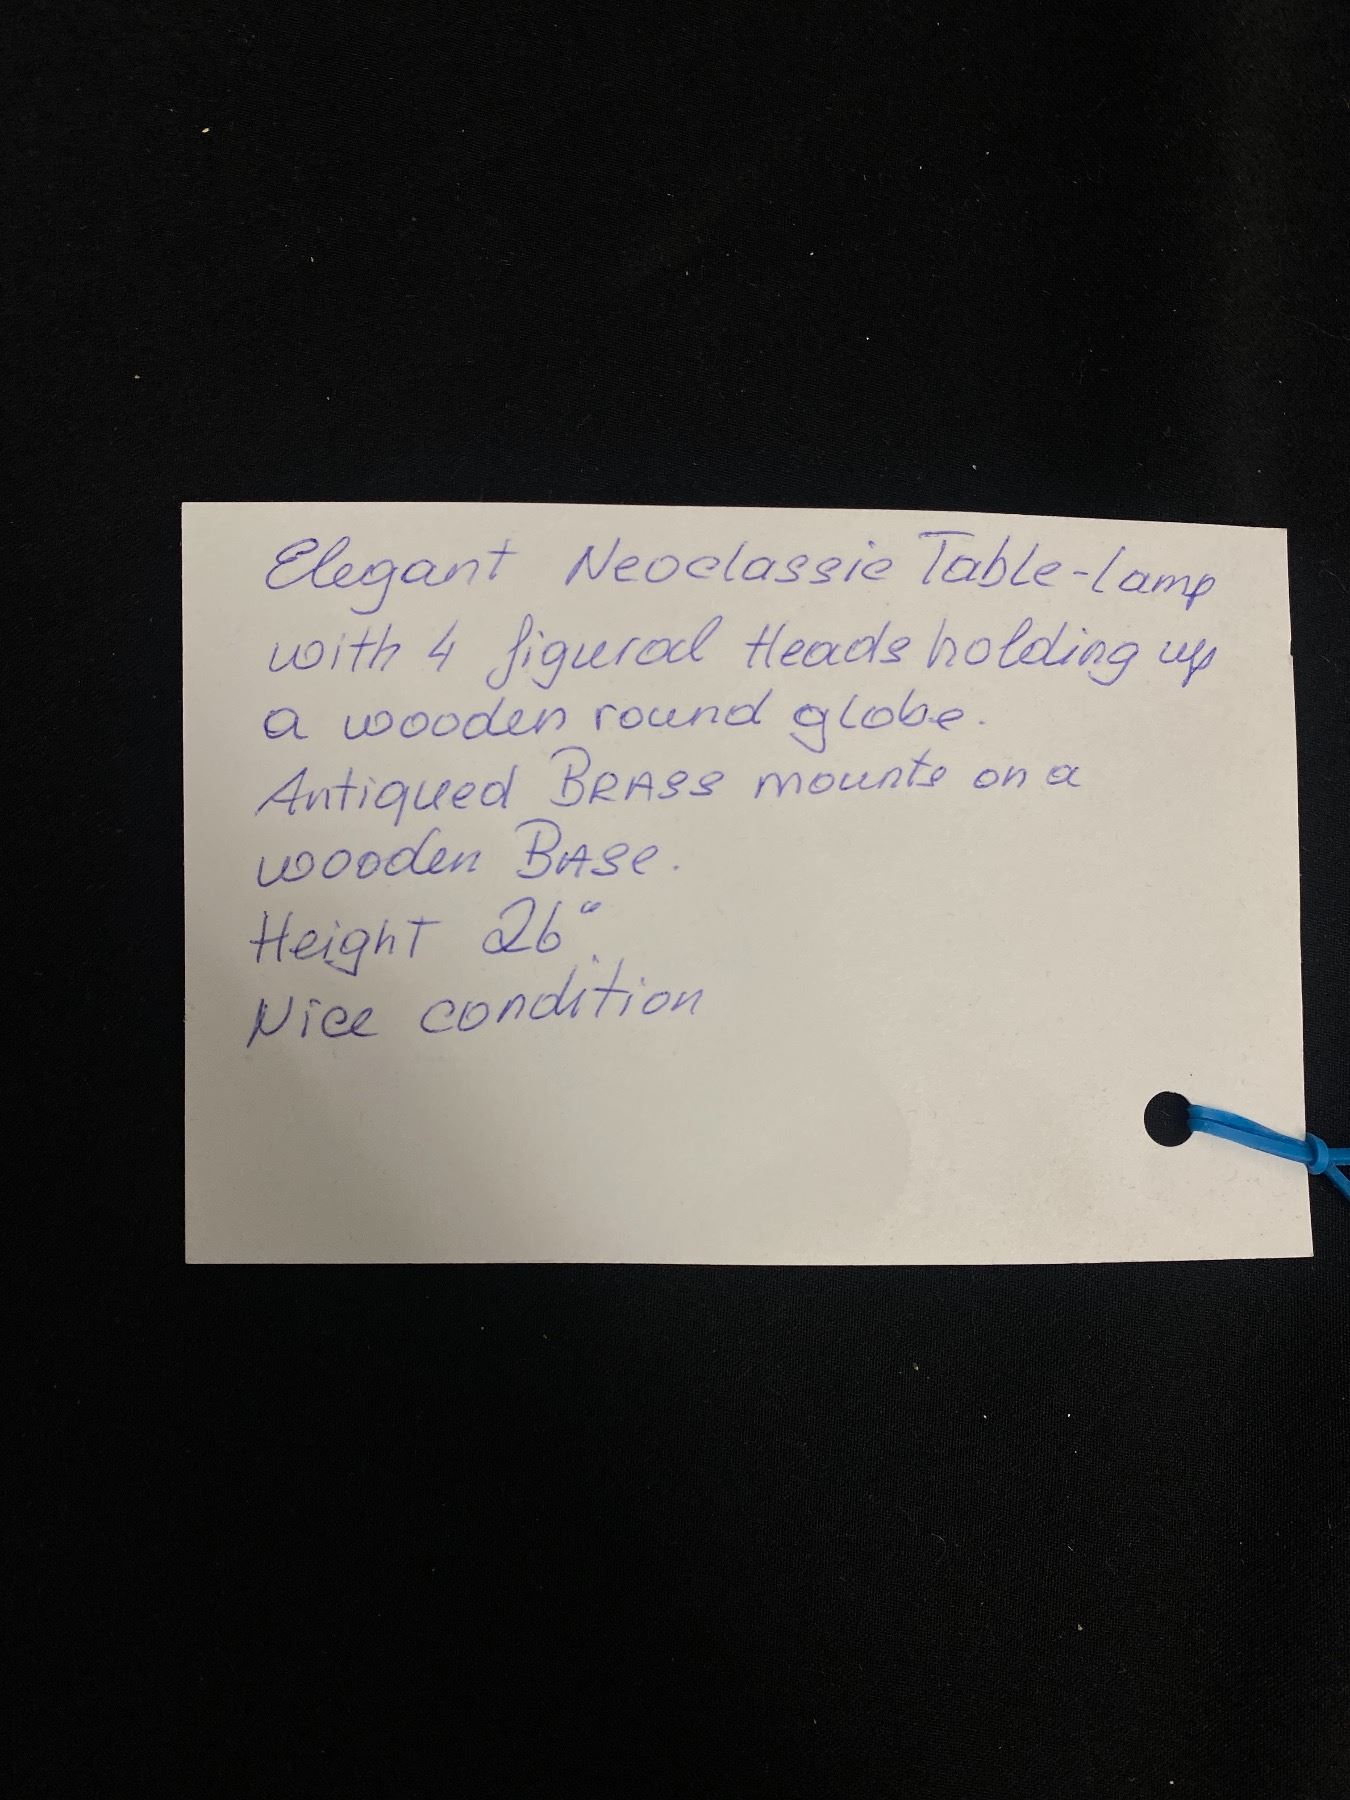 Elegant Neoclassic Table-lamp
with 4 figural Heads holding up
a wooden round globe.
Antiqued BRASS mounts on a
wooden BASe.
Height 26".
Nice condition